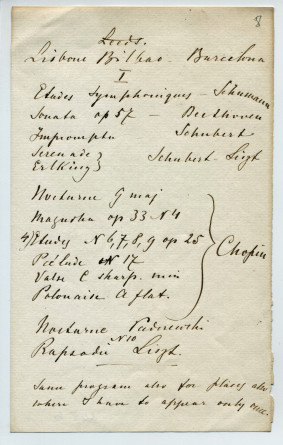 8
Leeds.
Lisbone Bilbao - Barcelona
I
Etudes Symphoniques - Schumann
Sonata op 57 - Beethoven
Impromptu Schubert
Serenade }
Erlking } Schubert-Liszt
Nocturne G maj
Mazurka op 33 N 4
4) Etudes N 6, 7, 8, 9 op 25
Prelude N 17 Chopin
Valse C sharp. min
Polonaise A flat.
Nocturne Paderewski
Rapsodie N 10 Liszt.
Same program also for places also
where I have to appear only once.